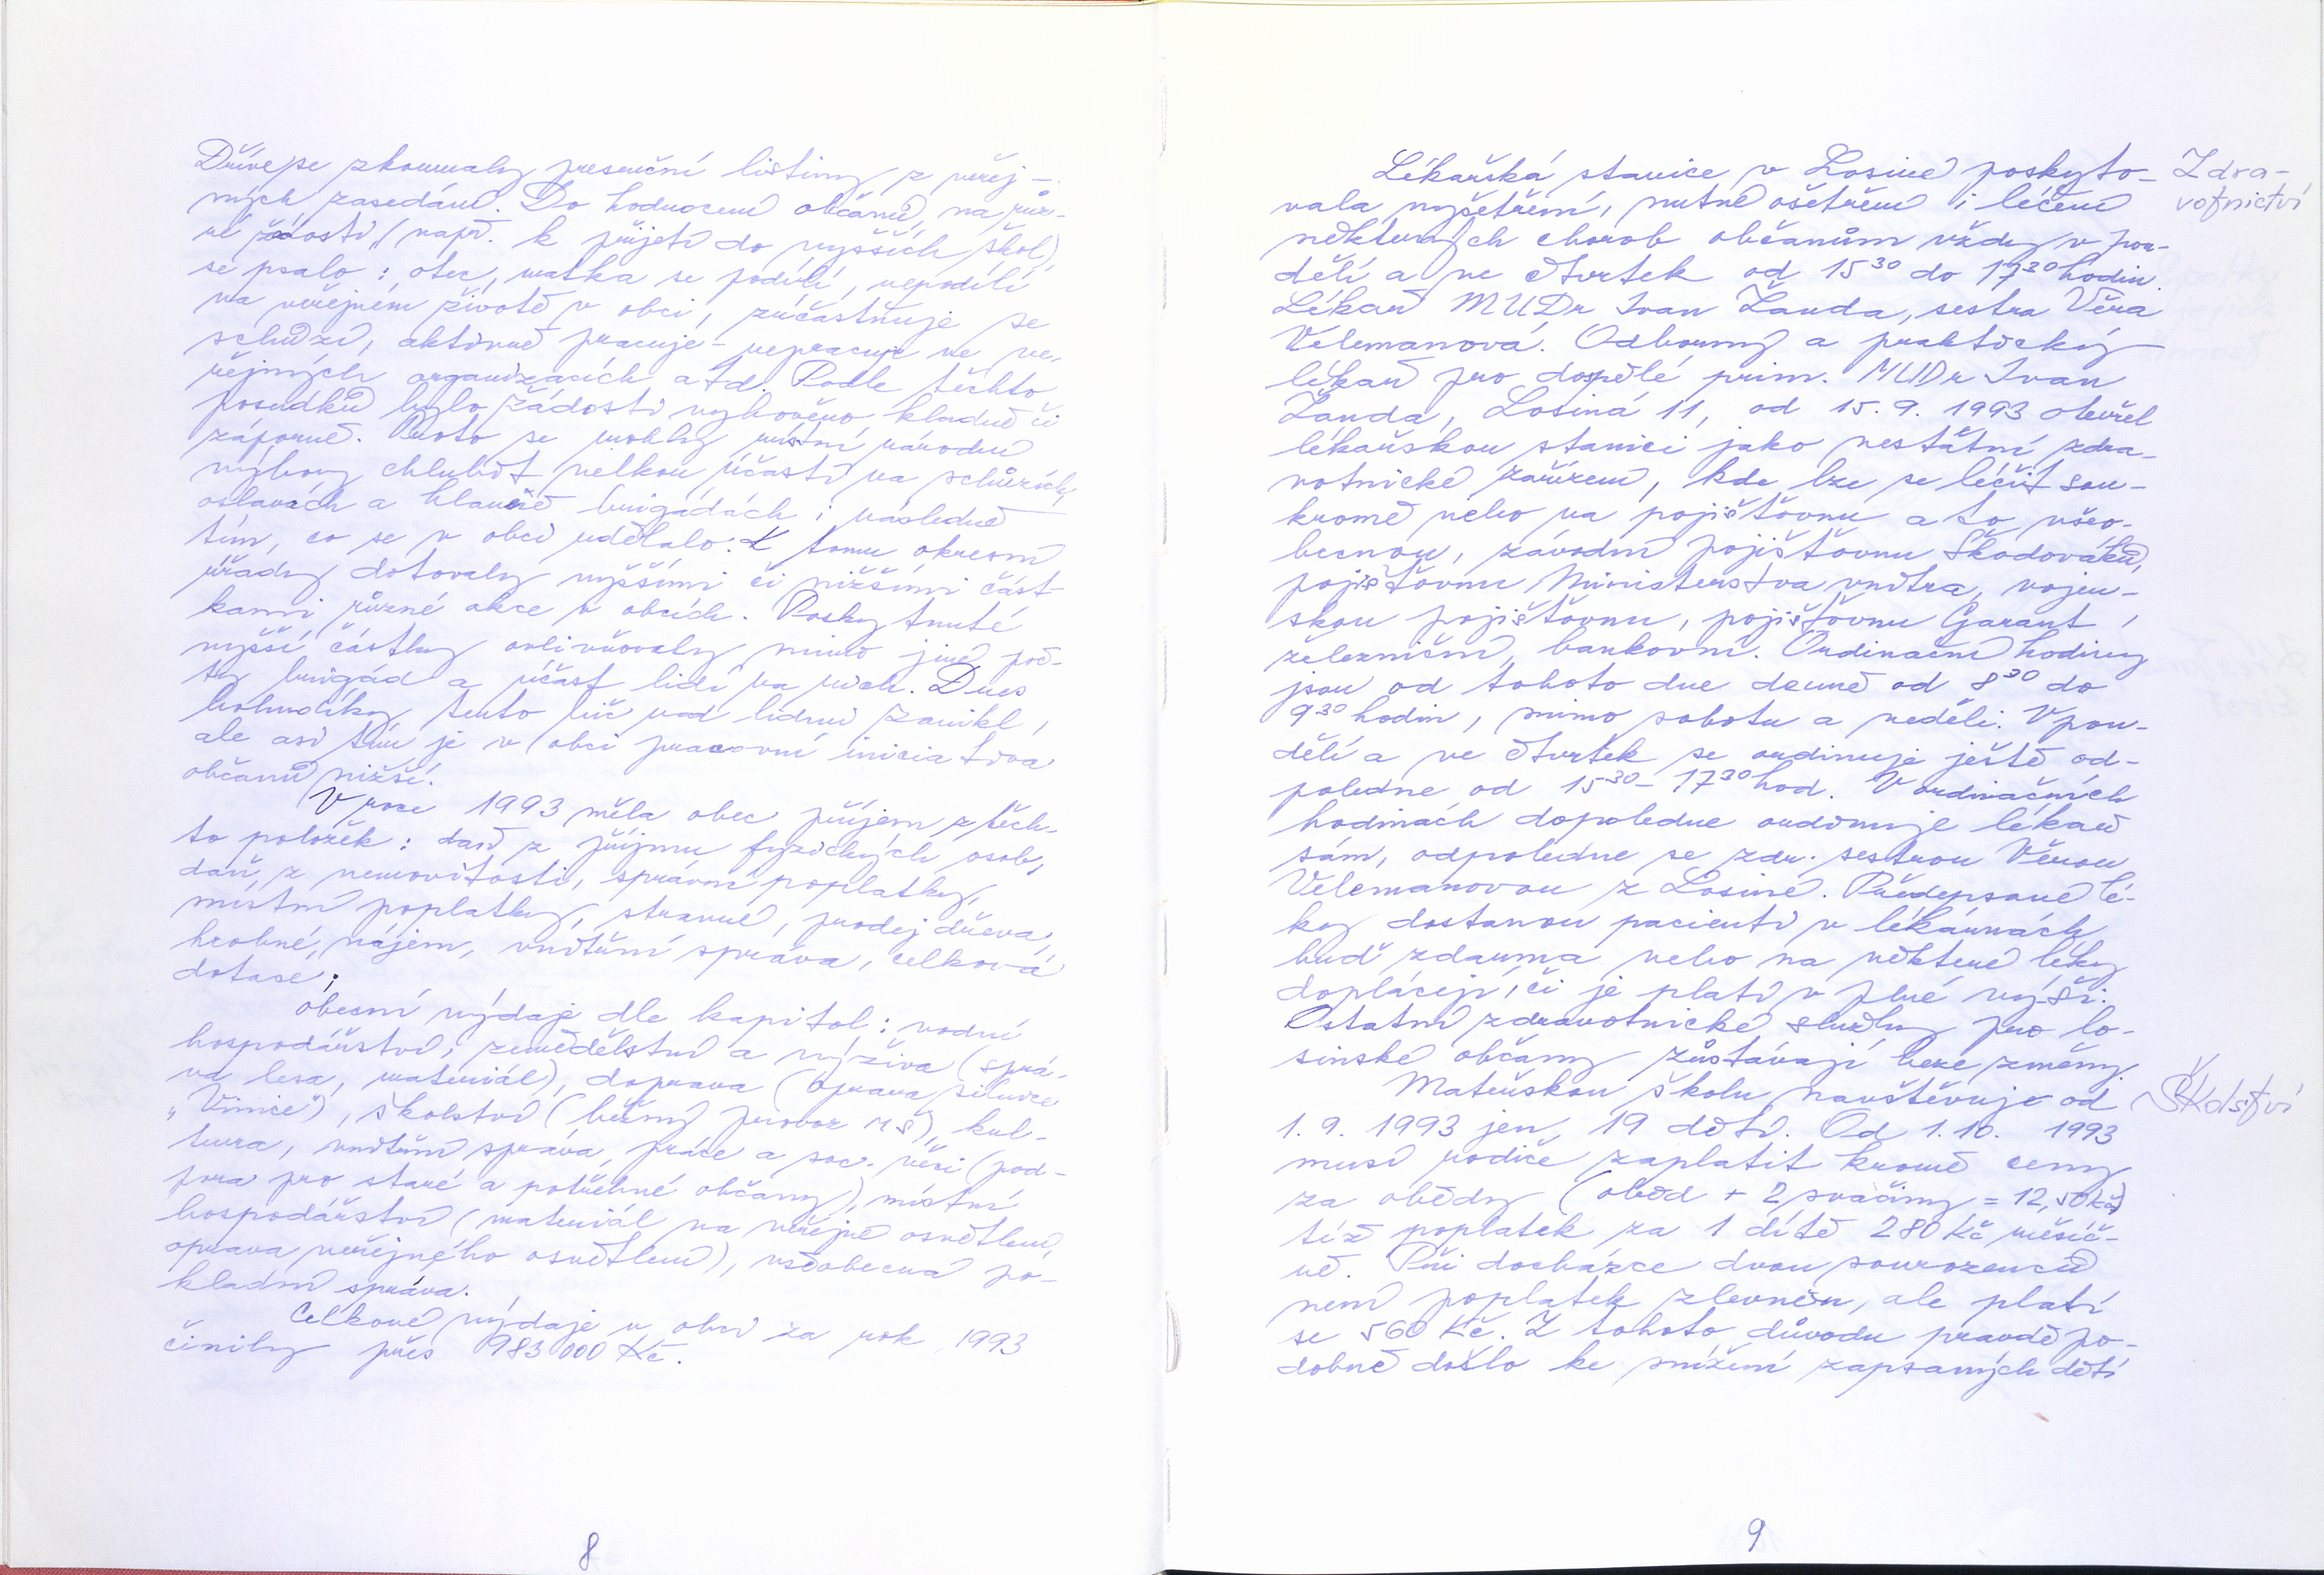 Dříve se zkoumaly presenční listiny z veřej-
ných zasedání. Do hodnocení občanů, na růz-
né žádosti (např. k přijetí do vyšších škol),
se psalo: otec, matka se podílí, nepodílí
na veřejném životě v obci, zúčastňuje se
schůzí, aktivně pracuje - nepracuje ve ve-
řejných organizacích atd. Podle těchto
posudků bylo žádosti vyhověno kladně či
záporně. Proto se mohly místní národní
výbory chlubit velkou účastí na schůzích,
oslavách a hlavně brigádách i následně
tím, co se v obci udělalo. K tomu okresní
úřady dotovaly vyššími či nižšími část-
kami různé akce v obcích. Poskytnuté
vyšší částky ovlivňovaly mimo jiné poč-
ty brigád a účast lidí na nich. Dnes
bohudíky tento bič nad lidmi zanikl,
ale asi tím je v obci pracovní iniciativa
občanů nižší.
V roce 1993 měla obec příjem z těch-
to položek: daň z příjmu fyzických osob,
daň z nemovitosti, správní poplatky,
místní poplatky, stravné, prodej dřeva,
hrobné, nájem, vnitřní správa, celková
dotace;
obecní výdaje dle kapitol: vodní
hospodářství, zemědělství a výživa (sprá-
va lesa, materiál), doprava (oprava silnice
„Vinice"), školství (běžný provoz MŠ), kul-
tura, vnitřní správa, práce a soc. věci (pod-
pora pro staré a potřebné občany), místní
hospodářství (materiál na veřejné osvětlení,
oprava veřejného osvětlení), všeobecná po-
kladní správa.
Celkové výdaje v obci za rok 1993
činily přes 983 000 Kč.
8
Lékařská stanice v Losiné poskyto-
vala vyšetření, nutné ošetření i léčení
některých chorob občanům vždy v pon-
dělí a ve čtvrtek od 15³⁰ do 17³⁰ hodin.
Lékař MUDr Ivan Žanda, sestra Věra
Velemanová. Odborný a praktický
lékař pro dospělé prim. MUDr Ivan
Žanda, Losiná 11, od 15. 9. 1993 otevřel
lékařskou stanici jako nestátní zdra-
votnické zařízení, kde lze se léčit sou-
kromě nebo na pojišťovnu a to všeo-
becnou, závodní pojišťovnu Škodováků,
pojišťovnu Ministerstva vnitra, vojen-
skou pojišťovnu, pojišťovnu Garant,
železniční, bankovní. Ordinační hodiny
jsou od tohoto dne denně od 8³⁰ do
9³⁰ hodin, mimo sobotu a neděli. V pon-
dělí a ve čtvrtek se ordinuje ještě od-
poledne od 15³⁰ - 17³⁰ hod. V ordinačních
hodinách dopoledne ordinuje lékař
sám, odpoledne se zdr. sestrou Věrou
Velemanovou z Losiné. Předepsané lé-
ky dostanou pacienti v lékárnách
buď zdarma nebo na některé léky
doplácejí, či je platí v plné výši.
Ostatní zdravotnické služby pro lo-
sinské občany zůstávají beze změny.
Mateřskou školu navštěvuje od
1. 9. 1993 jen 19 dětí. Od 1. 10. 1993
musí rodiče zaplatit kromě ceny
za obědy (oběd + 2 svačiny = 12,50 Kč)
též poplatek za 1 dítě 280 Kč měsíč-
ně. Při docházce dvou sourozenců
není poplatek zlevněn, ale platí
se 560 Kč. Z tohoto důvodu pravděpo-
dobně došlo ke snížení zapsaných dětí
Zdra-
votnictví
Školství
9